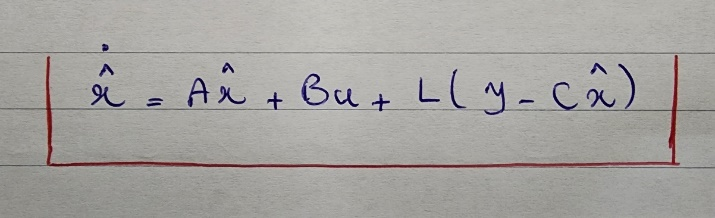 x̂̇ = Ax̂ + Bu + L( y - Cx̂ )